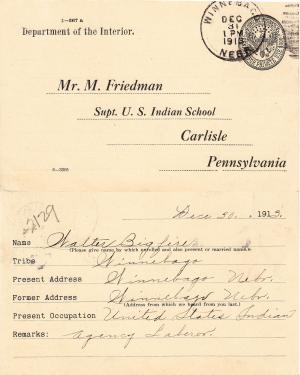 1-567 a
Department of the Interior.
WINNEBAGO
DEC
31
1 PM
1913
NEBR.
Mr. M. Friedman
Supt. U. S. Indian School
Carlisle
Pennsylvania
Dec 30, 1913.
Name Walter Bigfire
(Please give name by which enrolled and also present or married name.)
Tribe Winnebago
Present Address Winnebago Nebr.
Former Address Winnebago Nebr.
(Address from which we heard from you last.)
Present Occupation United States Indian
Remarks: Agency Laberor.